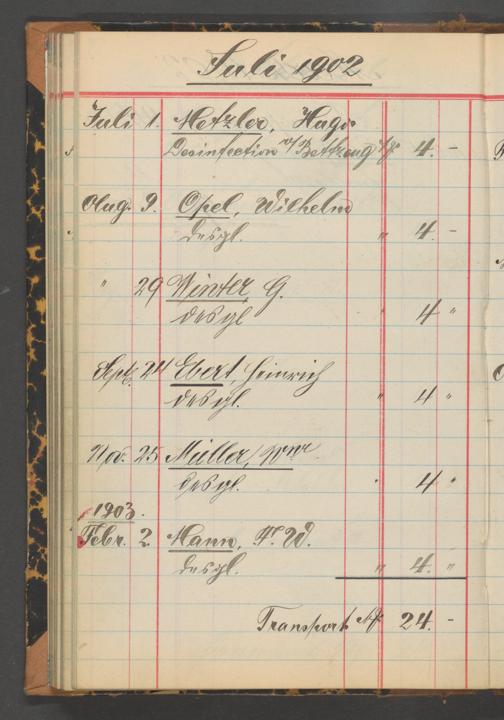 Juli 1902
Juli 1. Metzler, Hugo
Desinfection v/ Bettzeug M. 4. -
Aug. 9. Opel, Wilhelm
desgl. " 4. -
" 29 Winter, G.
desgl " 4 "
Spt. 24 Evert, Heinrich
desgl. " 4 "
Nov. 25 Müller, Wwe.
desgl. " 4 "
1903.
Febr. 2. Hann, Fr. W.
desgl. " 4. "
Transport M. 24. -